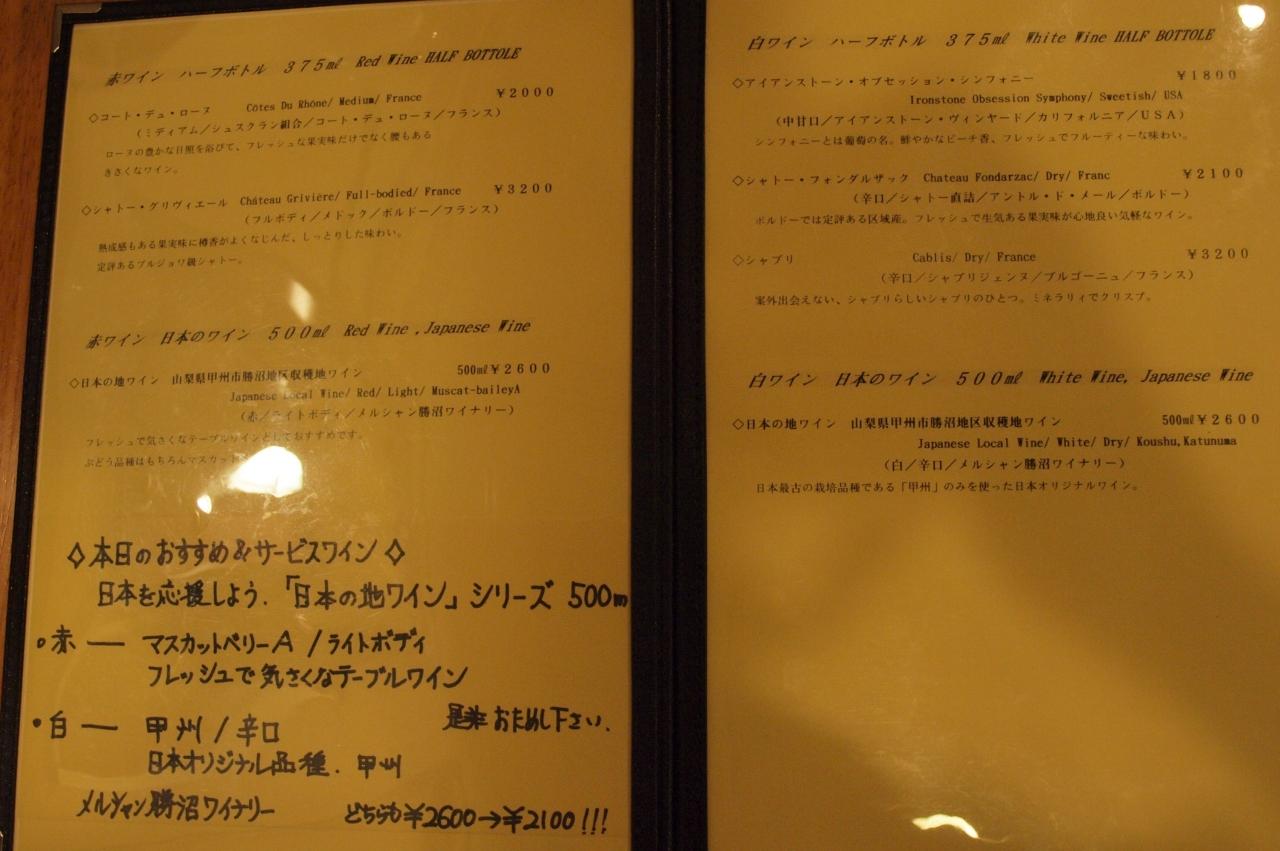 赤ワイン ハーフボトル 375㎖ Red Wine HALF BOTTOLE
◇コート・デュ・ローヌ Côtes Du Rhône/ Medium/ France ￥2000
(ミディアム／シュスクラン組合／コート・デュ・ローヌ／フランス)
ローヌの豊かな日照を浴びて、フレッシュな果実味だけでなく腰もある
きさくなワイン。
◇シャトー・グリヴィエール Château Grivière/ Full-bodied/ France ￥3200
(フルボディ／メドック／ボルドー／フランス)
熟成感もある果実味に樽香がよくなじんだ、しっとりした味わい。
定評あるブルジョワ級シャトー。
赤ワイン 日本のワイン 500㎖ Red Wine ,Japanese Wine
◇日本の地ワイン 山梨県甲州市勝沼地区収穫地ワイン 500㎖￥2600
Japanese Local Wine/ Red/ Light/ Muscat-baileyA
(赤／ライトボディ／メルシャン勝沼ワイナリー)
フレッシュで気さくなテーブルワインとしておすすめです。
ぶどう品種はもちろんマスカット
◇本日のおすすめ&サービスワイン◇
日本を応援しよう.「日本の地ワイン」シリーズ 500m
•赤 — マスカットベリーA /ライトボディ
フレッシュで気さくなテーブルワイン
•白 — 甲州/辛口 是非おためし下さい.
日本オリジナル品種. 甲州
メルシャン勝沼ワイナリー どちらも¥2600→¥2100!!!
白ワイン ハーフボトル 375㎖ White Wine HALF BOTTOLE
◇アイアンストーン・オブセッション・シンフォニー ￥1800
Ironstone Obsession Symphony/ Sweetish/ USA
(中甘口／アイアンストーン・ヴィンヤード／カリフォルニア／USA)
シンフォニーとは葡萄の名。鮮やかなピーチ香、フレッシュでフルーティーな味わい。
◇シャトー・フォンダルザック Chateau Fondarzac/ Dry/ Franc ￥2100
(辛口／シャトー直詰／アントル・ド・メール／ボルドー)
ボルドーでは定評ある区域産。フレッシュで生気ある果実味が心地良い気軽なワイン。
◇シャブリ Cablis/ Dry/ France ￥3200
(辛口／シャブリジェンヌ／ブルゴーニュ／フランス)
案外出会えない、シャブリらしいシャブリのひとつ。ミネラリィでクリスプ。
白ワイン 日本のワイン 500㎖ White Wine, Japanese Wine
◇日本の地ワイン 山梨県甲州市勝沼地区収穫地ワイン 500㎖￥2600
Japanese Local Wine/ White/ Dry/ Koushu,Katunuma
(白／辛口／メルシャン勝沼ワイナリー)
日本最古の栽培品種である「甲州」のみを使った日本オリジナルワイン。